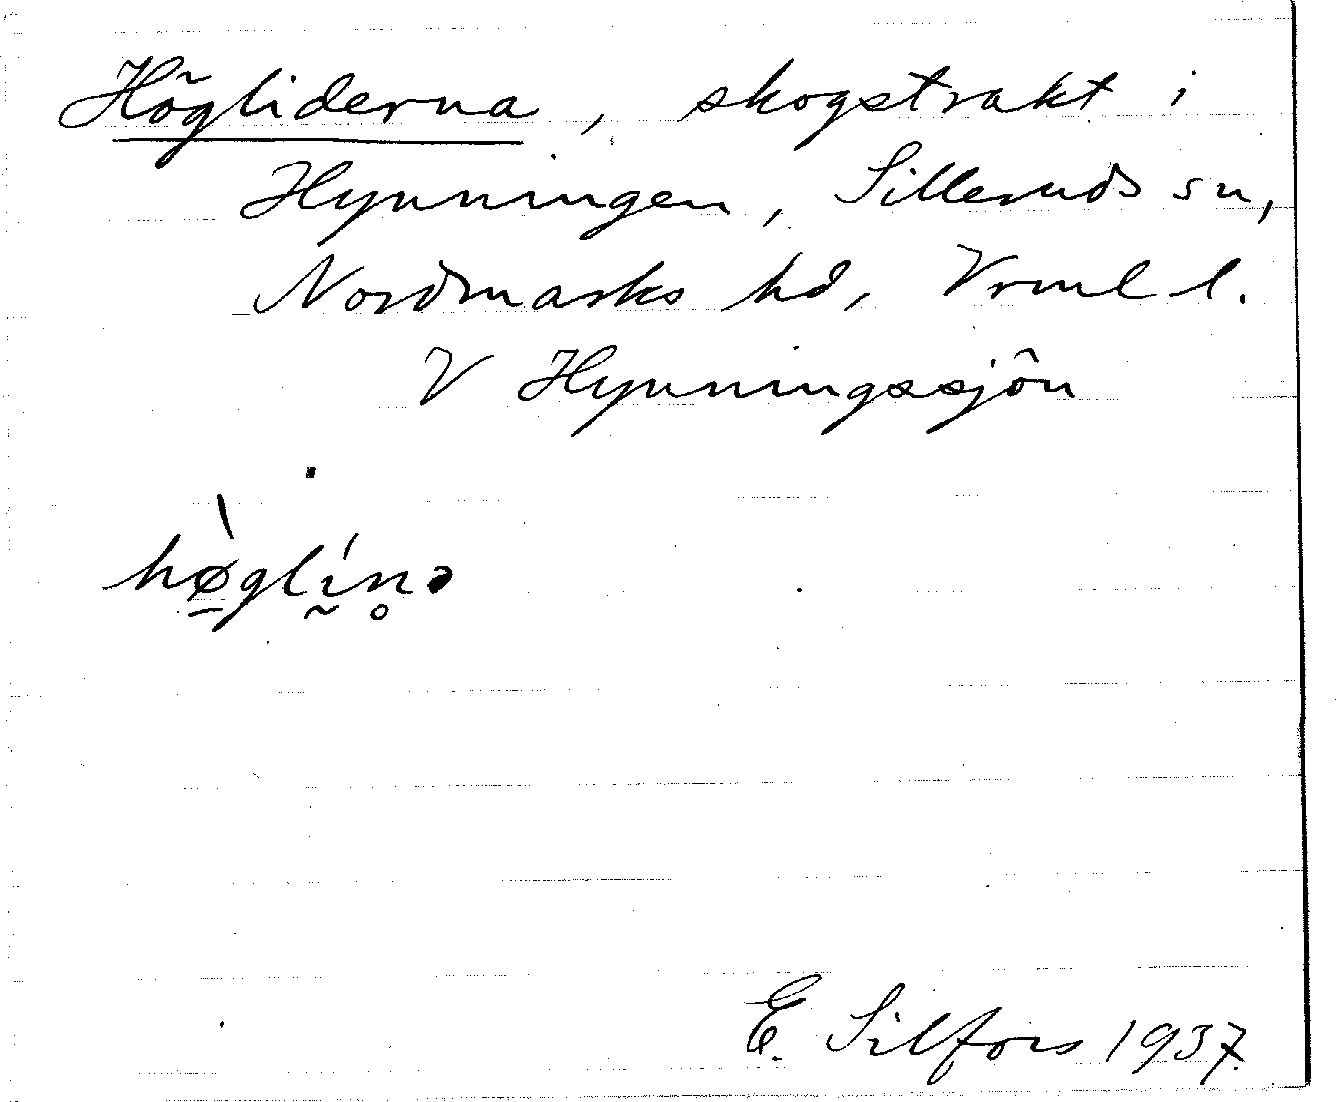 Högliderna, skogstrakt i
Hynningen, Silleruds sn,
Nordmarks hd, Vrml l.
V Hynningssjön
hø̠̀glḭ́n̥ə
E. Silfors 1937.